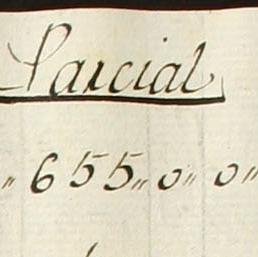 Parcial
„ 655 „ 0 „ 0 „